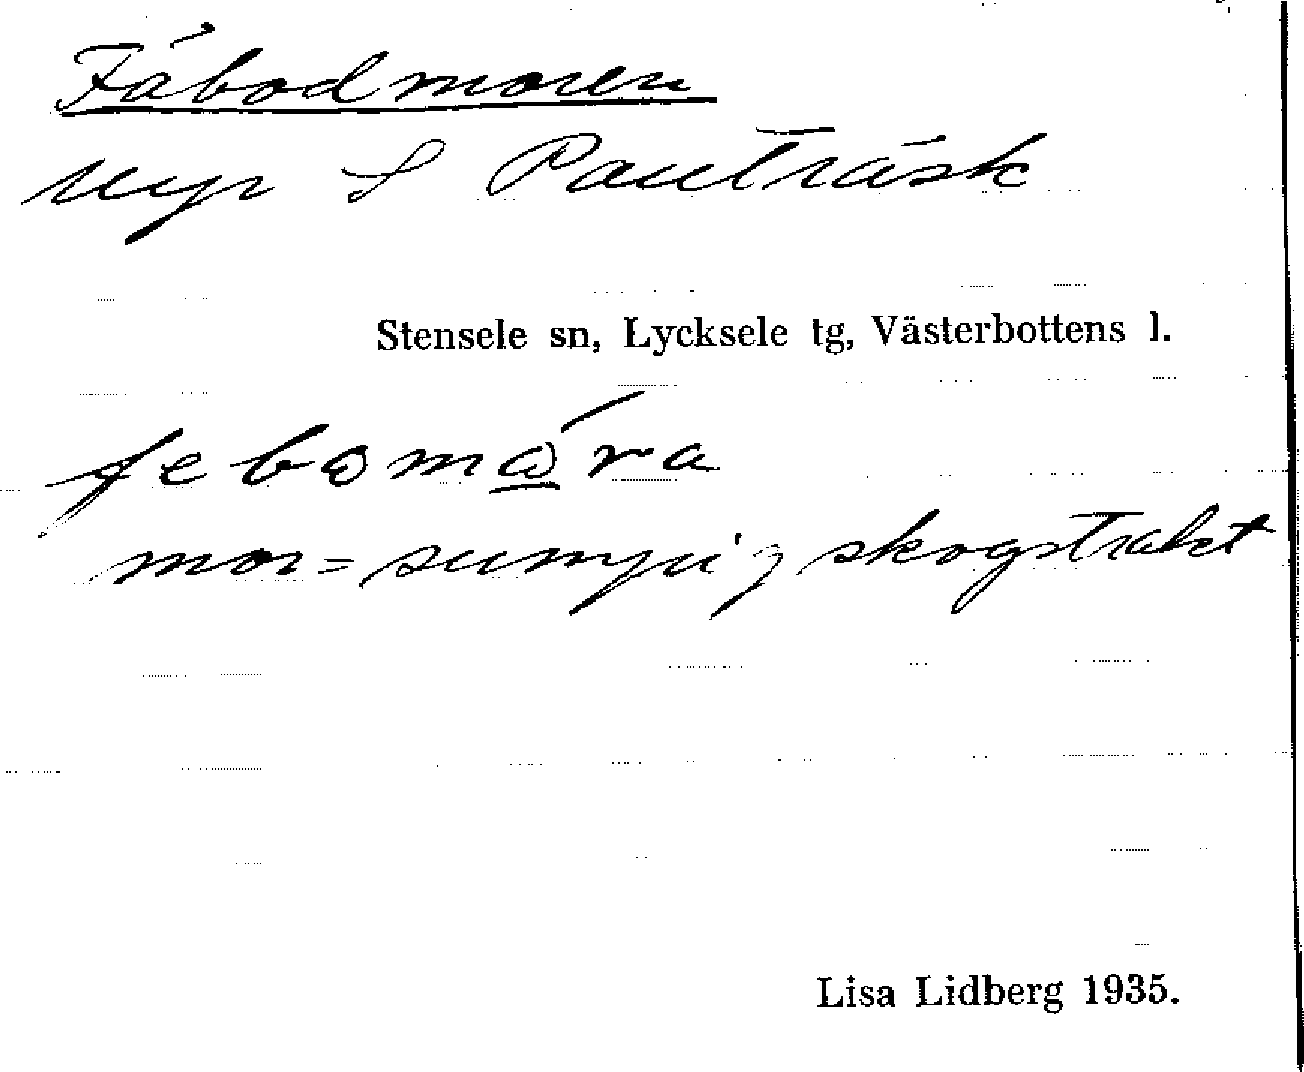 Fäbodmoren
uyr S Pauträsk
Stensele sn, Lycksele tg, Västerbottens l.
febomώ̲ra
mor = sumpig skogstrakt
Lisa Lidberg 1935.